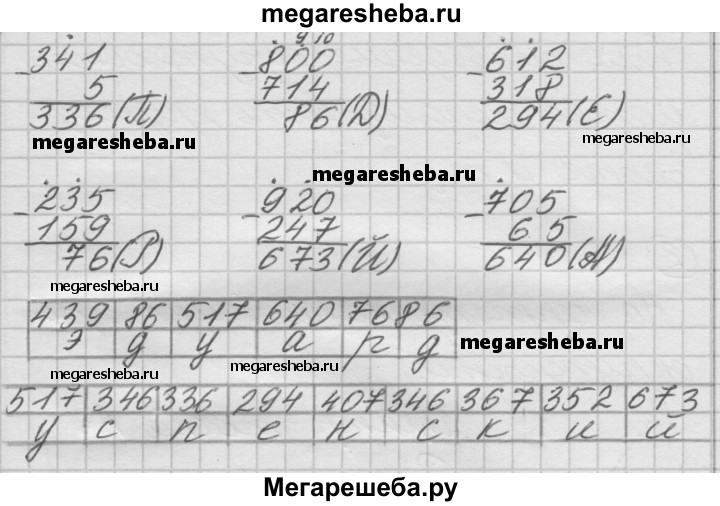 megaresheba.ru
9 10
341 800 612
- 5 - 714 - 318
336 (П) 86 (Д) 294 (Е)
megaresheba.ru megaresheba.ru
megaresheba.ru
235 920 705
- 159 - 247 - 65
76 (Р) 673 (Й) 640 (А)
megaresheba.ru megaresheba.ru
439 86 517 640 76 86
э д у а р д
megaresheba.ru
megaresheba.ru megaresheba.ru
517 346 336 294 407 346 367 352 673
у с п е н с к и й
Мегарешеба.ру